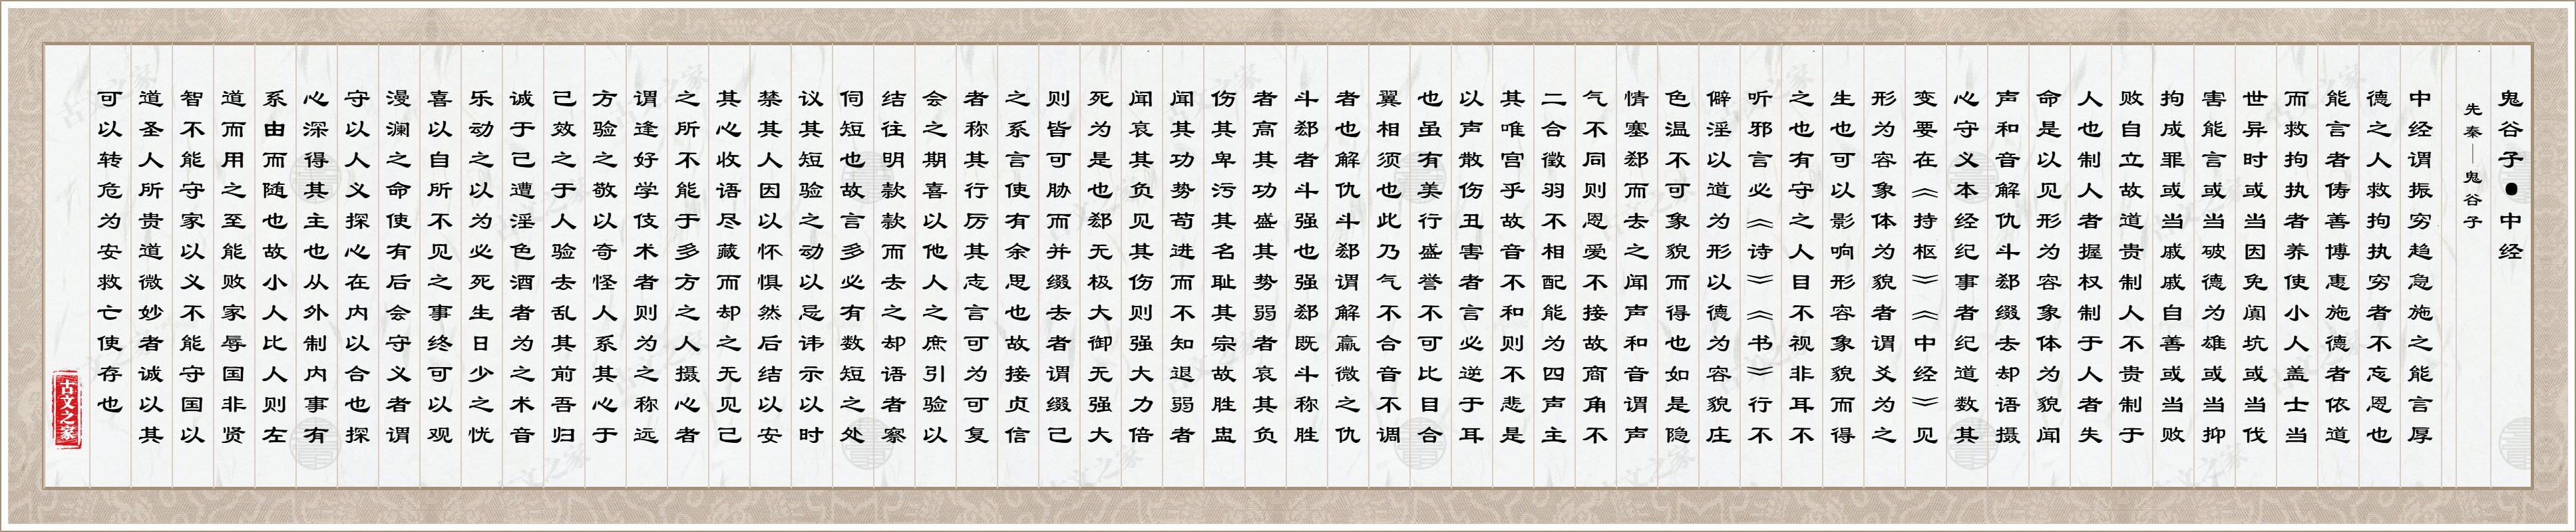 鬼谷子●中经
先秦—鬼谷子
中经谓振穷趋急施之能言厚
德之人救拘执穷者不忘恩也
能言者俦善博惠施德者依道
而救拘执者养使小人盖士当
世异时或当因免阗坑或当伐
害能言或当破德为雄或当抑
拘成罪或当戚戚自善或当败
败自立故道贵制人不贵制于
人也制人者握权制于人者失
命是以见形为容象体为貌闻
声和音解仇斗郄缀去却语摄
心守义本经纪事者纪道数其
变要在《持枢》《中经》见
形为容象体为貌者谓爻为之
生也可以影响形容象貌而得
之也有守之人目不视非耳不
听邪言必《诗》《书》行不
僻淫以道为形以德为容貌庄
色温不可象貌而得也如是隐
情塞郄而去之闻声和音谓声
气不同则恩爱不接故商角不
二合徵羽不相配能为四声主
其唯宫乎故音不和则不悲是
以声散伤丑害者言必逆于耳
也虽有美行盛誉不可比目合
翼相须也此乃气不合音不调
者也解仇斗郄谓解羸微之仇
斗郄者斗强也强郄既斗称胜
者高其功盛其势弱者哀其负
伤其卑污其名耻其宗故胜盅
闻其功势苟进而不知退弱者
闻哀其负见其伤则强大力倍
死为是也郄无极大御无强大
则皆可胁而并缀去者谓缀己
之系言使有余思也故接贞信
者称其行厉其志言可为可复
会之期喜以他人之庶引验以
结往明款款而去之却语者察
伺短也故言多必有数短之处
议其短验之动以忌讳示以时
禁其人因以怀惧然后结以安
其心收语尽藏而却之无见己
之所不能于多方之人摄心者
谓逢好学伎术者则为之称远
方验之敬以奇怪人系其心于
己效之于人验去乱其前吾归
诚于己遭淫色酒者为之术音
乐动之以为必死生日少之忧
喜以自所不见之事终可以观
漫澜之命使有后会守义者谓
守以人义探心在内以合也探
心深得其主也从外制内事有
系由而随也故小人比人则左
道而用之至能败家辱国非贤
智不能守家以义不能守国以
道圣人所贵道微妙者诚以其
可以转危为安救亡使存也
古文之家